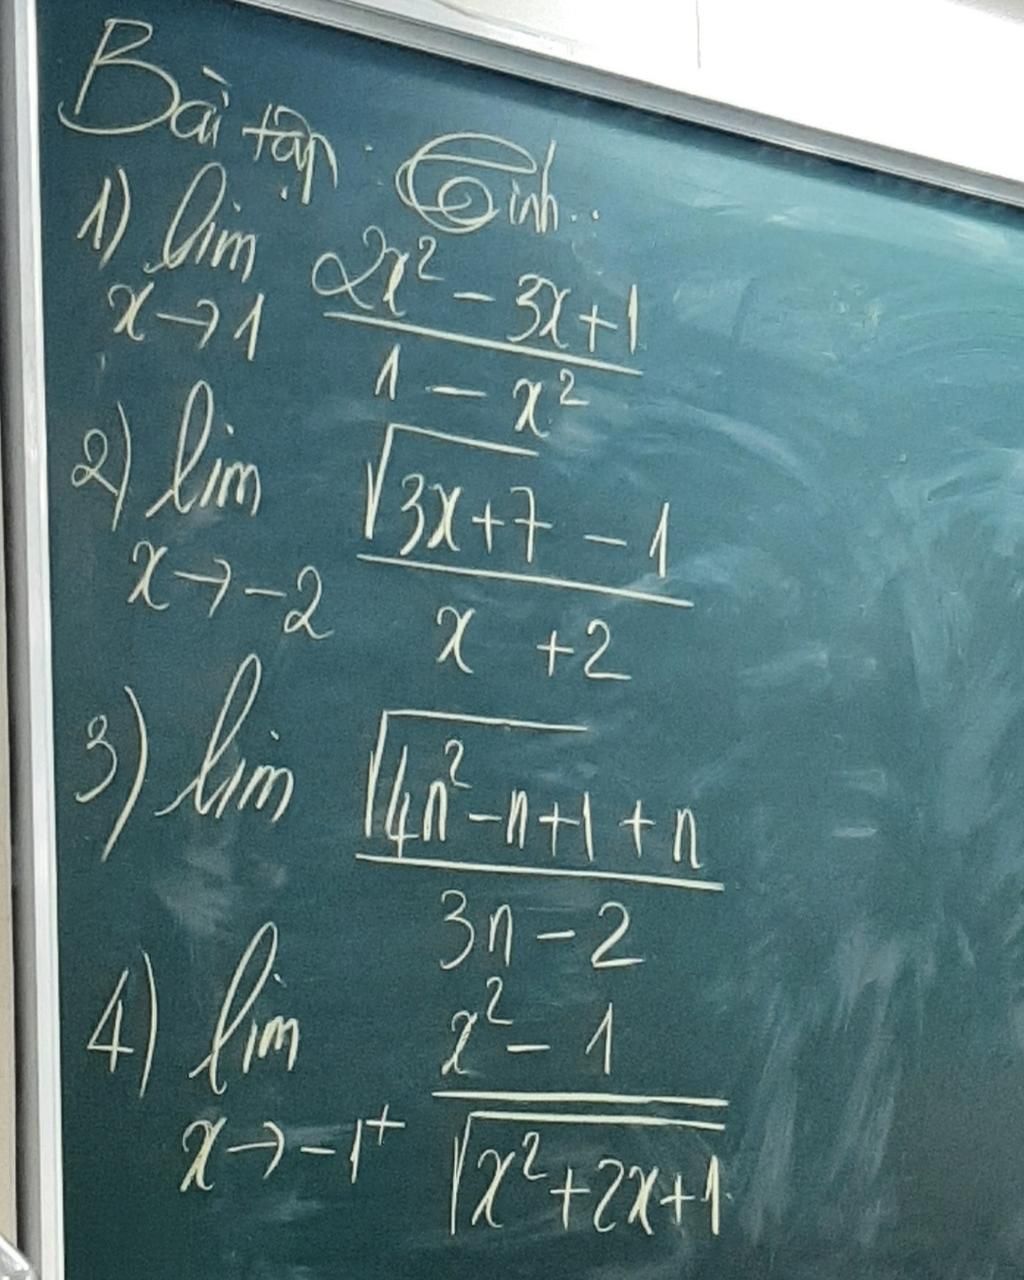 Bài tập. Tính..
1) lim 2x² - 3x+1
x→1 1 - x²
2) lim √3x+7 - 1
x→-2 x +2
3) lim √4n²-n+1 + n
3n - 2
4) lim x² - 1
x→-1⁺ √x²+2x+1